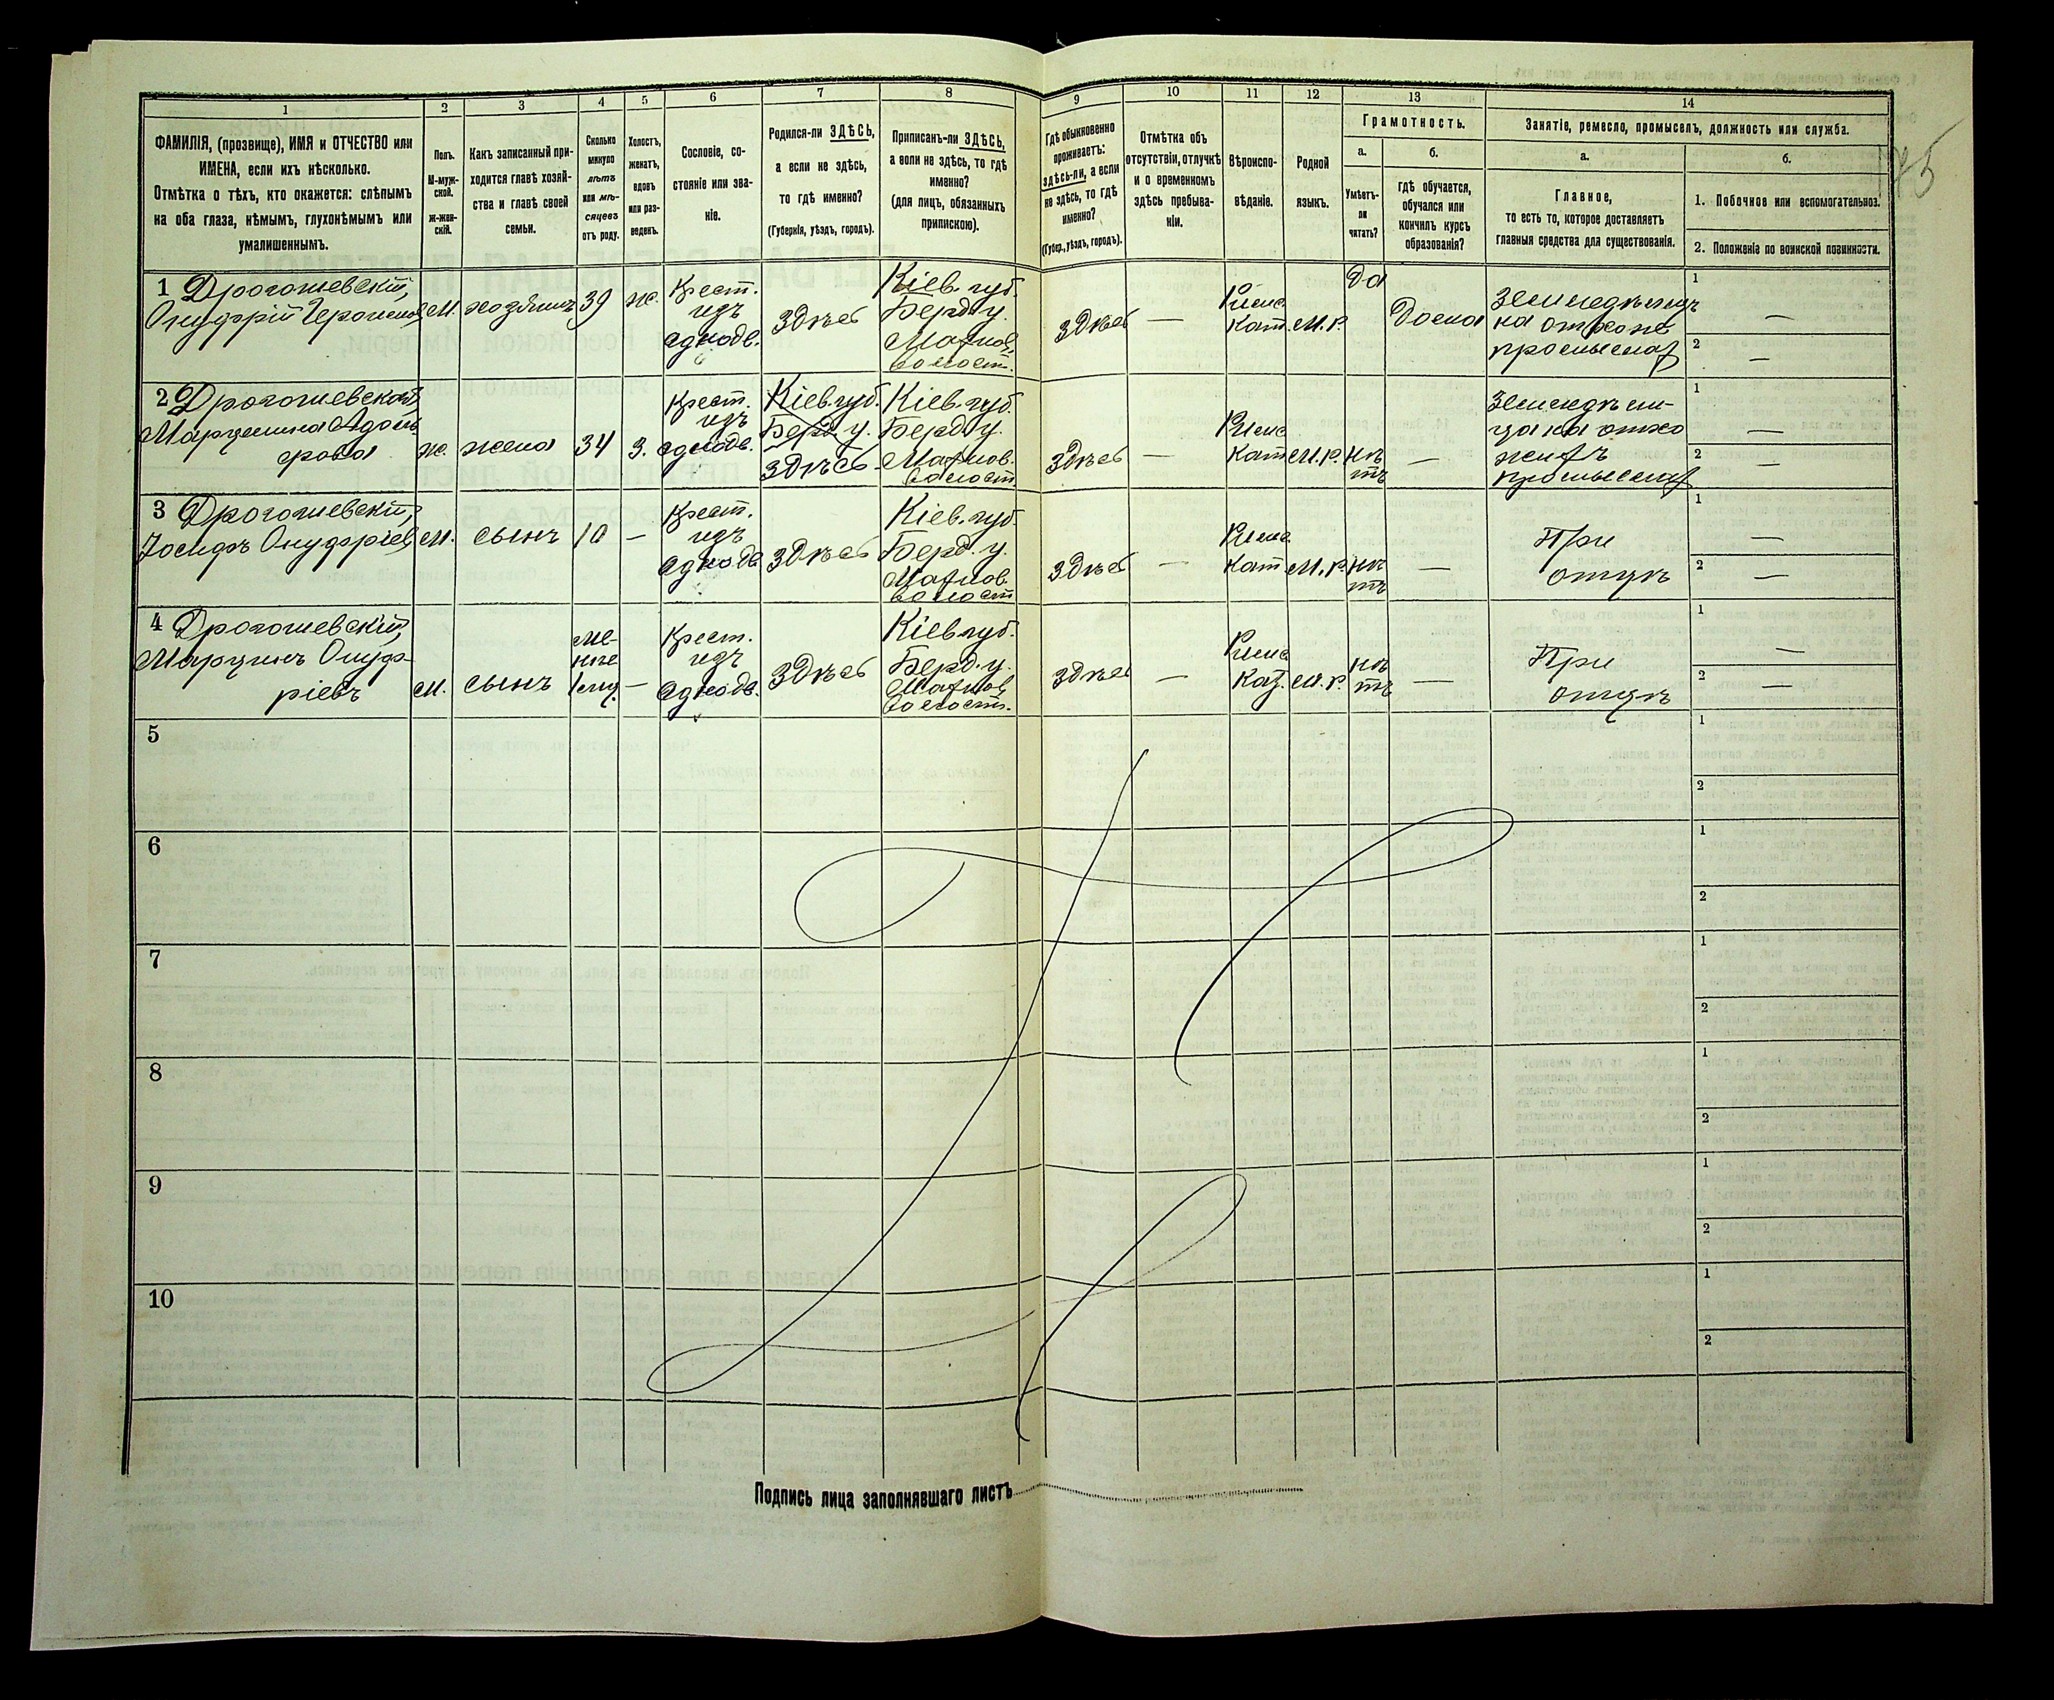 1
2
3
4
5
6
7
8
9
10
11
12
13
14
ФАМИЛІЯ, (прозвище), ИМЯ и ОТЧЕСТВО или
ИМЕНА, если ихъ нѣсколько.
Отмѣтка о тѣхъ, кто окажется: слѣпымъ
на оба глаза, нѣмымъ, глухонѣмымъ или
умалишеннымъ.
Полъ.
М-муж-
ской.
ж-жен-
скій.
Какъ записанный при-
ходится главѣ хозяй-
ства и главѣ своей
семьи.
Сколько
минуло
лѣтъ
или мѣ-
сяцевъ
отъ роду.
Холостъ,
женатъ,
вдовъ
или раз-
веденъ.
Сословіе, со-
стояніе или зва-
ніе.
Родился-ли ЗДѢСЬ,
а если не здѣсь,
то гдѣ именно?
(Губернія, уѣздъ, городъ).
Приписанъ-ли ЗДѢСЬ,
а если не здѣсь, то гдѣ
именно?
(для лицъ, обязанныхъ
припискою).
Гдѣ обыкновенно
проживаетъ:
здѣсь-ли, а если
не здѣсь, то гдѣ
именно?
(Губер., уѣздъ, городъ).
Отмѣтка объ
отсутствіи, отлучкѣ
и о временномъ
здѣсь пребыва-
ніи.
Вѣроиспо-
вѣданіе.
Родной
языкъ.
Грамотность.
а.
Умѣетъ-
ли
читать?
б.
гдѣ обучается,
обучался или
кончилъ курсъ
образованія?
Занятіе, ремесло, промыселъ, должность или служба.
а.
Главное,
то есть то, которое доставляетъ
главныя средства для существованія.
б.
1. Побочное или вспомогательное.
2. Положеніе по воинской повинности.
1 Дрогошевскій,
Онуфрій
М.
хозяинъ
39
ж.
Крест.
изъ
однодв.
здѣсь
Кіев. губ.
Берд. у.
волост.
здѣсь
—
Римс.
кат.
м.р.
да
дома
земледѣлецъ
на отхоже
промыслах
1 —
2 —
2 Дрогошевская,
Марцелина
ж.
жена
34
з.
Крест.
изъ
однодв.
Кіев. губ.
Берд. у.
здѣсь
Кіев. губ.
Берд. у.
волост
здѣсь
—
Римс
кат
м.р.
нѣ
тъ
—
земледѣли-
ца на отхо
жихъ
промыслах
1 —
2 —
3 Дрогошевскій,
Іосифъ Онуфріев
м.
сынъ
10
—
Крест.
изъ
однодв
здѣсь
Кіев. губ.
Берд. у.
волост
здѣсь
—
Римс.
кат
м.р.
нѣ
тъ
—
При
отцѣ
1 —
2 —
4 Дрогошевскій,
Марцинъ Онуф-
ріевъ
м.
сынъ
ме-
нѣе
1 мц.
—
Крест.
изъ
однодв.
здѣсь
Кіев. губ.
Берд. у.
волост.
здѣсь
—
Римс
кат.
м.р.
нѣ
тъ
—
При
отцѣ
1 —
2 —
5
1
2
6
1
2
7
1
2
8
1
2
9
1
2
10
1
2
Подпись лица заполнявшаго листъ